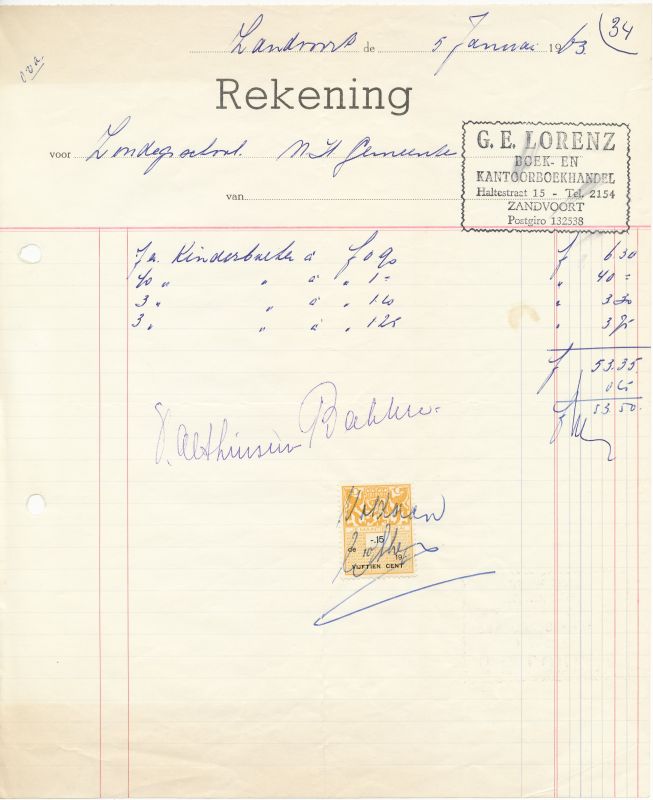 34
Zandvoort de 5 Januari 1963
Rekening
voor Zondagsschool. N H Gemeente
van
G. E. LORENZ
BOEK- EN
KANTOORBOEKHANDEL
Haltestraat 15 - Tel. 2154
ZANDVOORT
Postgiro 132538
7 ex Kinderboeken à f 0 90 f 6 30
40 " " à " 1 = " 40 =
3 " " à " 1 10 " 3 30
3 " " à " 1 25 " 3 75
f 53.35
0 15
f 53.50
Bakker
Voldaan
-.15
de 19
VIJFTIEN CENT